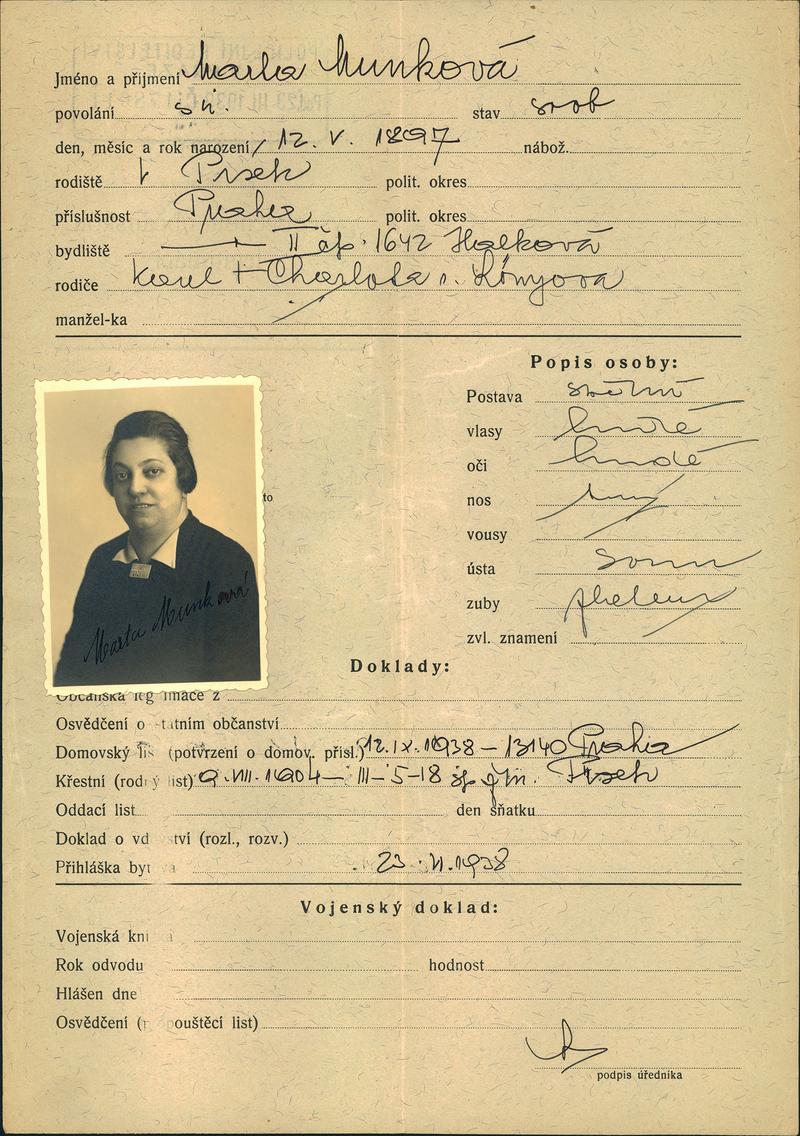 Jméno a přijmení Marta Munková
povolání stav svob
den, měsíc a rok narození 12. V. 1897 nábož.
rodiště Písek polit. okres
příslušnost Praha polit. okres
bydliště II čp. 1642 Hálková
rodiče Karel + Charlota r. Kónyova
manžel-ka
Popis osoby:
Postava
vlasy hnědé
oči hnědé
nos
vousy
ústa
zuby
zvl. znamení
to
Marta Munková
Doklady:
Občanská legimace z
Osvědčení o státním občanství
Domovský lis (potvrzení o domov. přísl.) 12. IX. 1938 – 13140 Praha
Křestní (rodný list) 9. VIII. 1904 – III – 5 – 18 Písek
Oddací list den sňatku
Doklad o vd tví (rozl., rozv.)
Přihláška byt 23. VI. 1938
Vojenský doklad:
Vojenská kni
Rok odvodu hodnost
Hlášen dne
Osvědčení ( pouštěcí list)
podpis úředníka